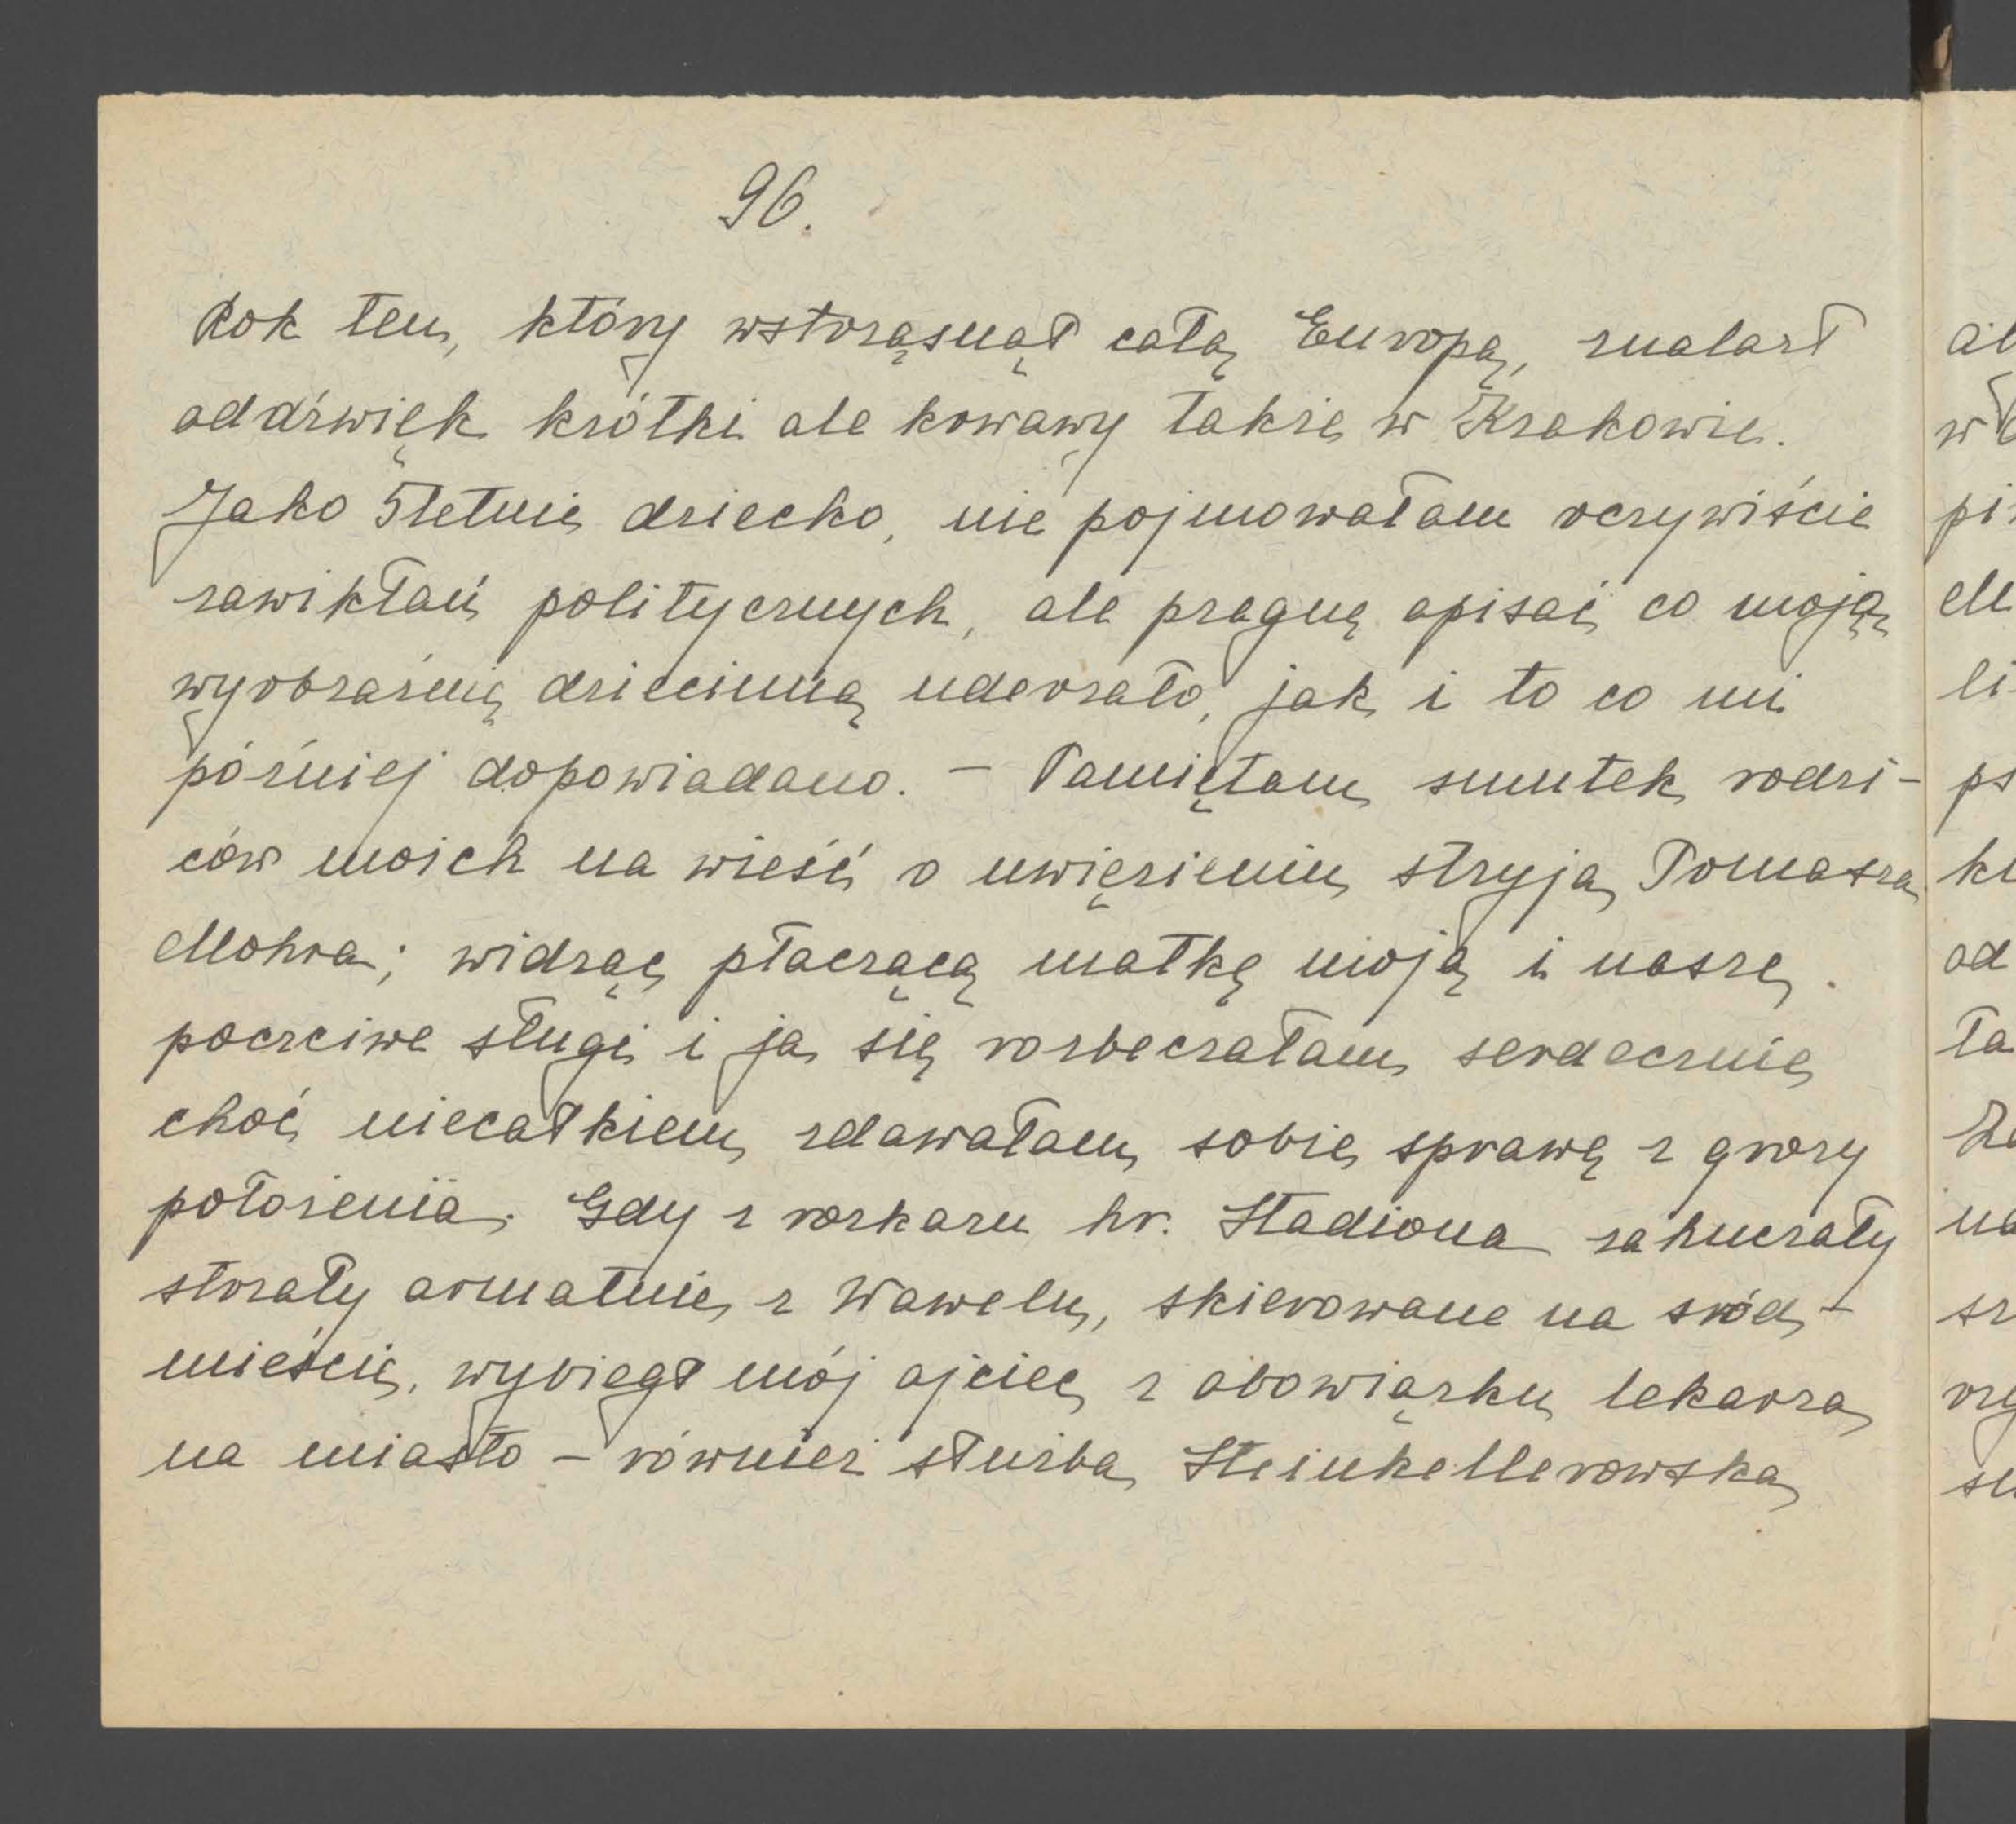 96.
Rok ten, który wstrząsnął całą Europą, znalazł
oddźwięk krótki ale krwawy także w Krakowie.
Jako 5letnie dziecko, nie pojmowałam oczywiście
zawikłań politycznych, ale pragnę opisać co moją
wyobraźnię dziecinną uderzało, jak i to co mi
później dopowiadano. – Pamiętam smutek rodzi-
ców moich na wieść o uwięzieniu stryja Tomasza
Mohra; widząc płaczącą matkę moją i nasze
poczciwe sługi i ja się rozbeczałam serdecznie
choć niecałkiem zdawałam sobie sprawę z grozy
położenia. Gdy z rozkazu hr. Stadiona zahuczały
strzały armatnie z Wawelu, skierowane na śród-
mieście, wybiegł mój ojciec z obowiązku lekarza
na miasto – również służba Steinkellerowska